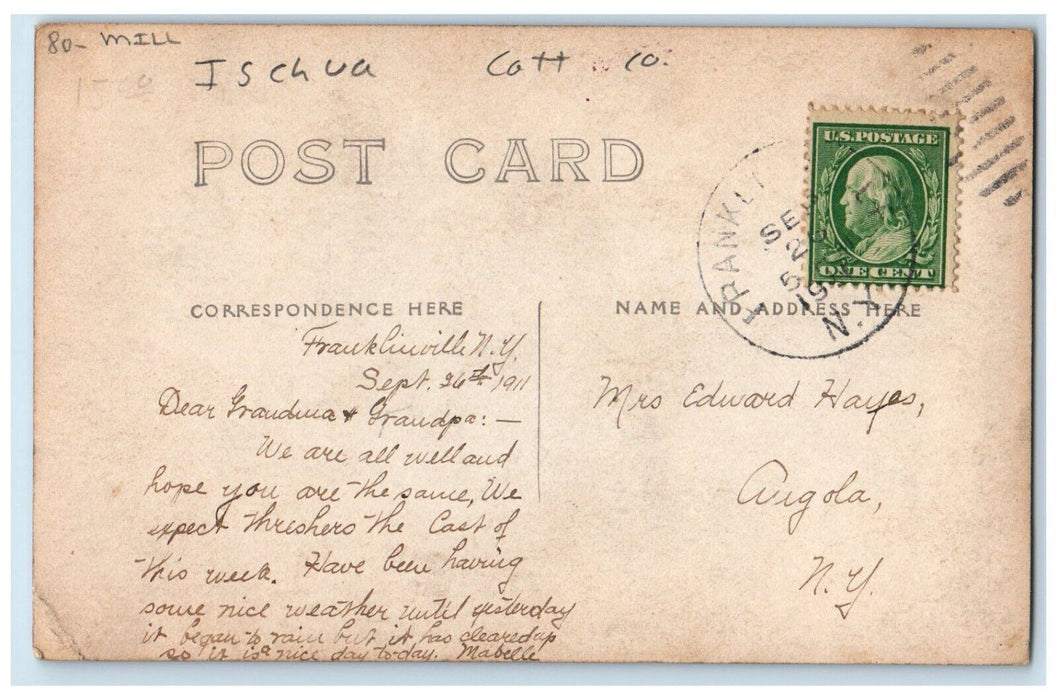 80- MILL
1500
Ischua Catt co.
POST CARD
U.S. POSTAGE
ONE CENT
FRANKLI
SEP
26
5
19
N.Y.
CORRESPONDENCE HERE
NAME AND ADDRESS HERE
Franklinville N.Y.
Sept. 26th 1911
Dear Grandma & Grandpa: —
We are all well and
hope you are the same, We
expect threshers the Last of
this week. Have been having
some nice weather until yesterday
it began to rain but it has cleared up
so it is a nice day to-day. Mabelle
Mrs Edward Hayes,
Angola,
N.Y.